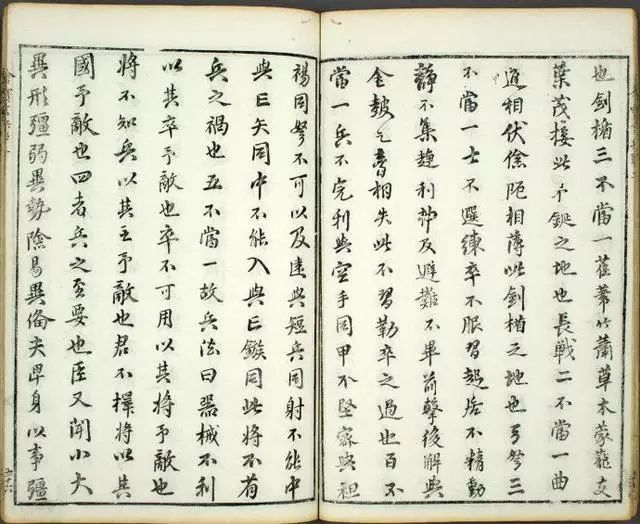 地劍楯三不當一萑葦竹蕭草木蒙蘢支
葉茂接此矛鋋之地也長戰二不當一曲
道相伏險阨相薄此劍楯之地也弓弩三
不當一士不選練卒不服習起居不精動
靜不集趨利弗及避難不畢前擊後解與
金皷之音相失此不習勒卒之過也百不
當一兵不完利與空手同甲不堅密與袒
裼同弩不可以及遠與短兵同射不能中
與亡矢同中不能入與亡鏃同此將不省
兵之禍也五不當一故兵法曰器械不利
以其卒予敵也卒不可用以其將予敵也
將不知兵以其主予敵也君不擇將以其
國予敵也四者兵之至要也臣又聞小大
異形彊弱異勢險易異備夫卑身以事彊